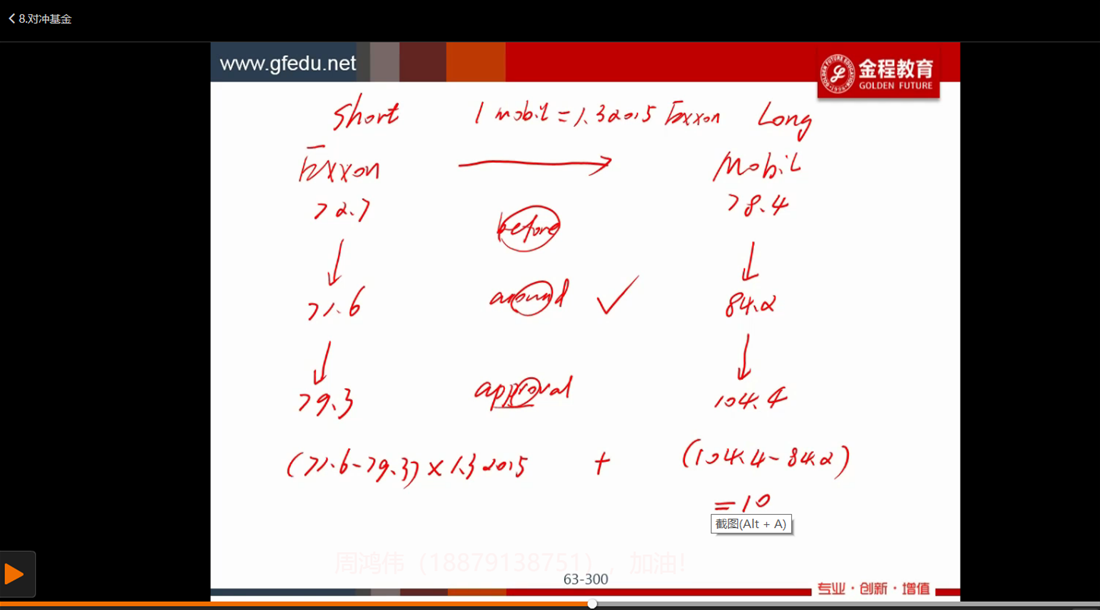 8.对冲基金
www.gfedu.net
金程教育
GOLDEN FUTURE
Short 1 mobil = 1.32015 Exxon Long
Exxon Mobil
72.7 78.4
before
71.6 around 84.2
79.3 approval 104.4
(71.6-79.3) × 1.32015 + (104.4-84.2)
=10
截图(Alt + A)
周鸿伟（18879138751），加油！
63-300
专业·创新·增值